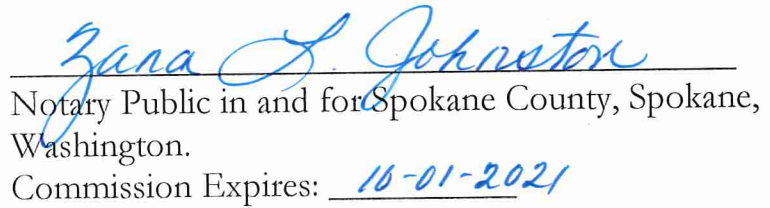 Zana L. Johnston
Notary Public in and for Spokane County, Spokane,
Washington.
Commission Expires: 10-01-2021